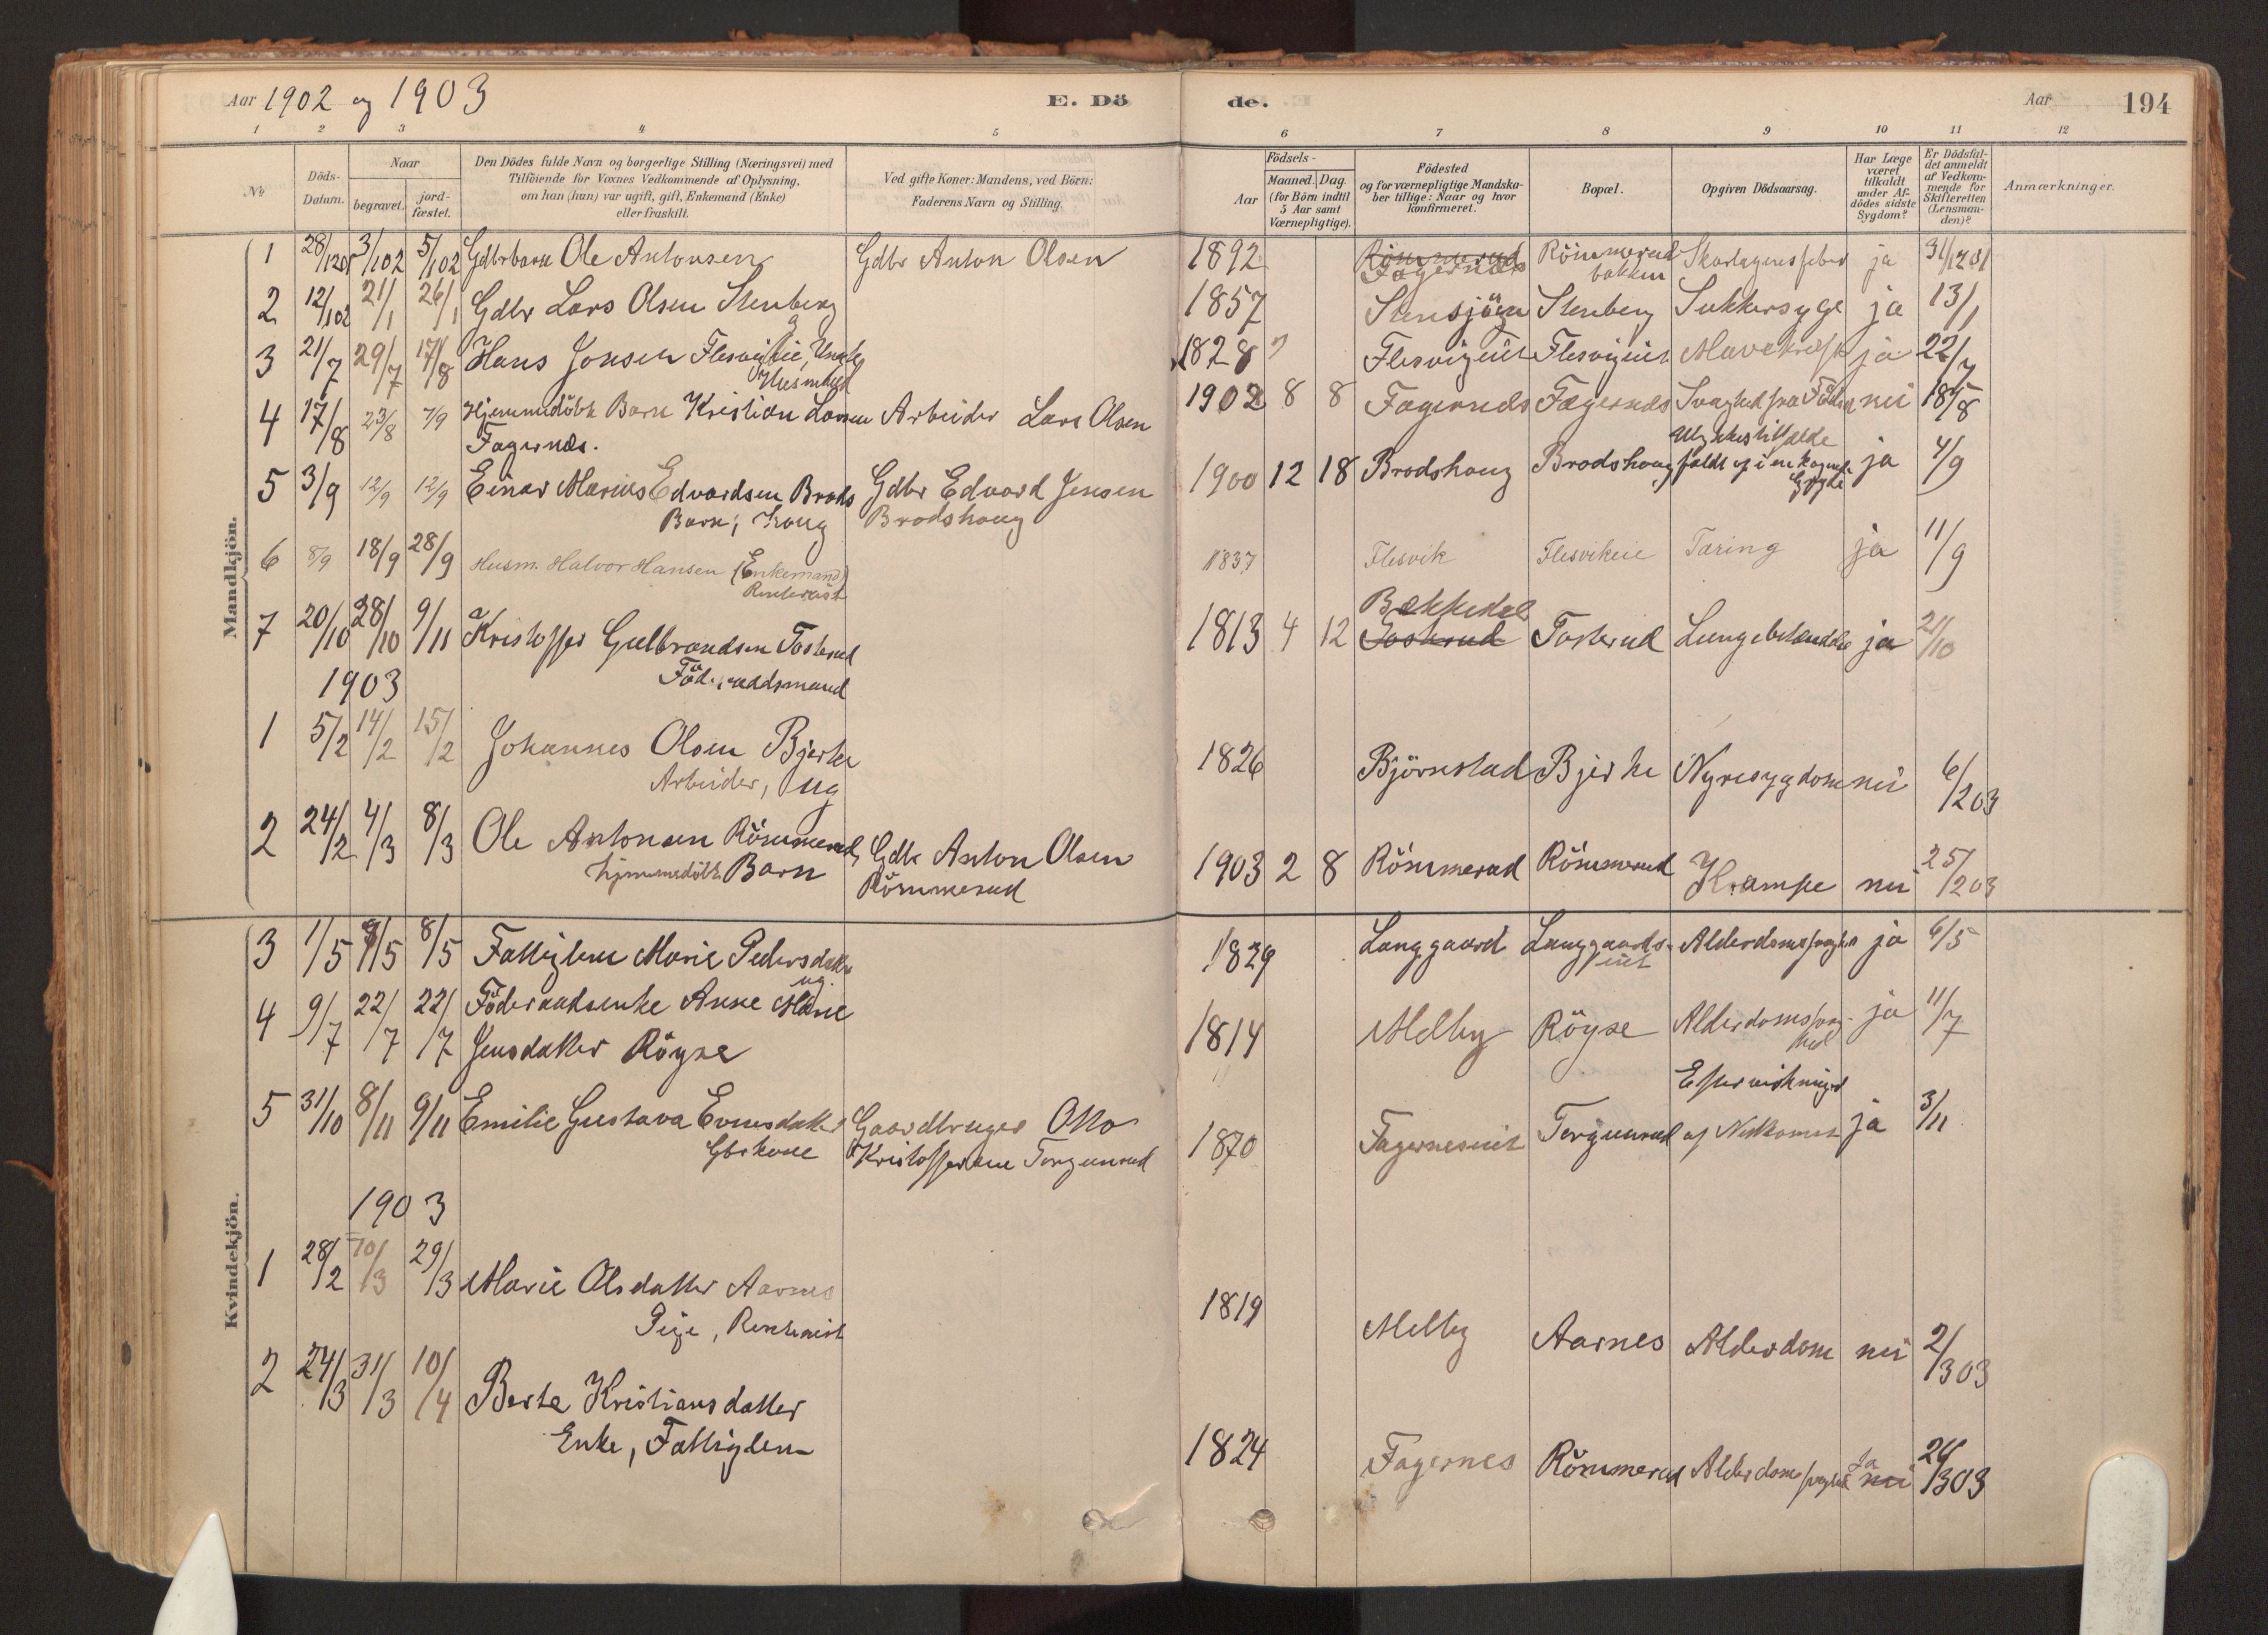 Aar 1902 og 1903
E. Dö
de.
Aar
194
1 2 3 4 5 6 7 8 9 10 11 12
No
Döds-
Datum.
Naar
begravet.
jord-
fæstet.
Den Dödes fulde Navn og borgerlige Stilling (Næringsvei) med
Tilföiende for Voxnes Vedkommende af Oplysning,
om han (hun) var ugift, gift, Enkemand (Enke)
eller fraskilt.
Ved gifte Koner: Mandens, ved Börn:
Faderens Navn og Stilling.
Födsels-
Aar
Maaned. Dag.
(for Börn indtil
5 Aar samt
Værnepligtige).
Födested
og for værnepligtige Mandska-
ber tillige: Naar og hvor
konfirmeret.
Bopæl.
Opgiven Dödsaarsag.
Har Læge
været
tilkaldt
under Af-
dödes sidste
Sygdom?
Er Dödsfal-
det anmeldt
af Vedkom-
mende for
Skifteretten
(Lensman-
den)?
Anmærkninger.
Mandkjön.
1 28/1201 3/102 5/102 Gdbrbarn Ole Antonsen Gdbr Anton Olsen 1892 Römmerud Fagernæs Römmerud
bakken Skarlagensfeber ja 31/1201
2 12/102 21/1 26/1 Gdbr Lars Olsen Stenberg 1857 Stensjöen Stenberg Sukkersyge ja 13/1
g
3 21/7 29/7 17/8 Hans Jonsen Flesvigeie, 1828 Flesvigeiet Flesvigeiet Mavekræft ja 22/7
4 17/8 23/8 7/9 Hjemmedöbt Barn Kristian Larsen Arbeider Lars Olsen 1902 8 8 Fagernæs Fagernæs Svaghed fra Föds nei 18/8
Fagernæs.
Ulykkestilfælde
5 3/9 12/9 12/9 Einar Marius Edvardsen Brods Gdbr Edvard Jensen 1900 12 18 Brodshoug Brodshoug faldt i en kogende
Gryde ja 4/9
Barn, houg Brodshoug
6 8/9 18/9 28/9 Husm. Halvor Hansen (Enkemand) 1837 Flesvik Flesvikeie Tæring ja 11/9
Bækkedal
7 20/10 28/10 9/11 Kristoffer Gulbrandsen Tosterud 1813 4 12 Tosterud Tosterud Lungebetændelse ja 21/10
Föderaadsmand
1903
1 5/2 14/2 15/2 Johannes Olsen Bjerke 1826 Björnstad Bjerke Nyresygdom nei 6/203
Arbeider, ug
2 24/2 4/3 8/3 Ole Antonsen Römmerud, Gdbr Anton Olsen 1903 2 8 Römmerud Römmerud Krampe nei 25/203
hjemmedöbt Barn Römmerud
Kvindekjön.
3 1/5 8/5 Fattiglem Marie Pedersdatter 1829 Langgaard Langgaards-
eiet Alderdomssvaghed ja 6/5
ug.
4 9/7 22/7 22/7 Föderaadsenke Anne Marie 1814 Melby Röyse Alderdomssvag-
hed ja 11/7
Jensdatter Röyse
Eftervirkninger
5 31/10 8/11 9/11 Emilie Gustava Evensdatter Gaardbruger Otto 1870 Fagerneseiet Torgunrud af Nedkomst ja 3/11
Gbrkone Kristoffersen Torgunrud
1903
1 28/2 10/3 29/3 Marie Olsdatter Aarnes 1819 Melby Aarnes Alderdom nei 2/303
Pige, Rentenist
2 24/3 31/3 10/4 Berte Kristiansdatter 1824 Fagernes Römmerud Alderdomssvaghed nei ja /303
Enke, Fattiglem